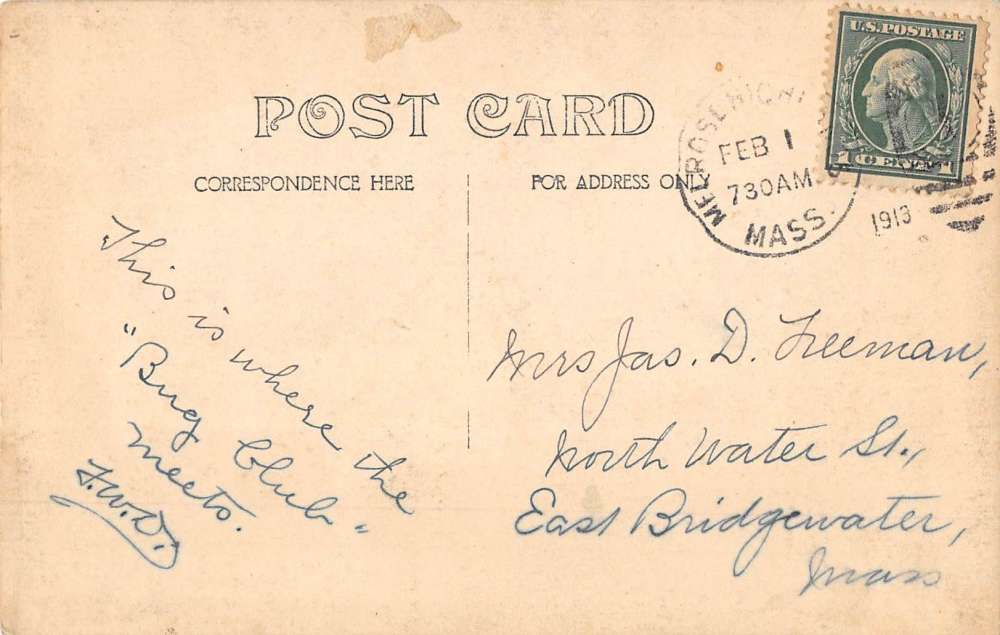 POST CARD
CORRESPONDENCE HERE
FOR ADDRESS ONLY
U.S. POSTAGE
1 CENT 1
MELROSE
FEB 1
730AM
MASS.
1913
This is where the
"Bug Club"
meets.
F.W.D.
Mrs Jas. D. Freeman,
North Water St.,
East Bridgewater,
Mass